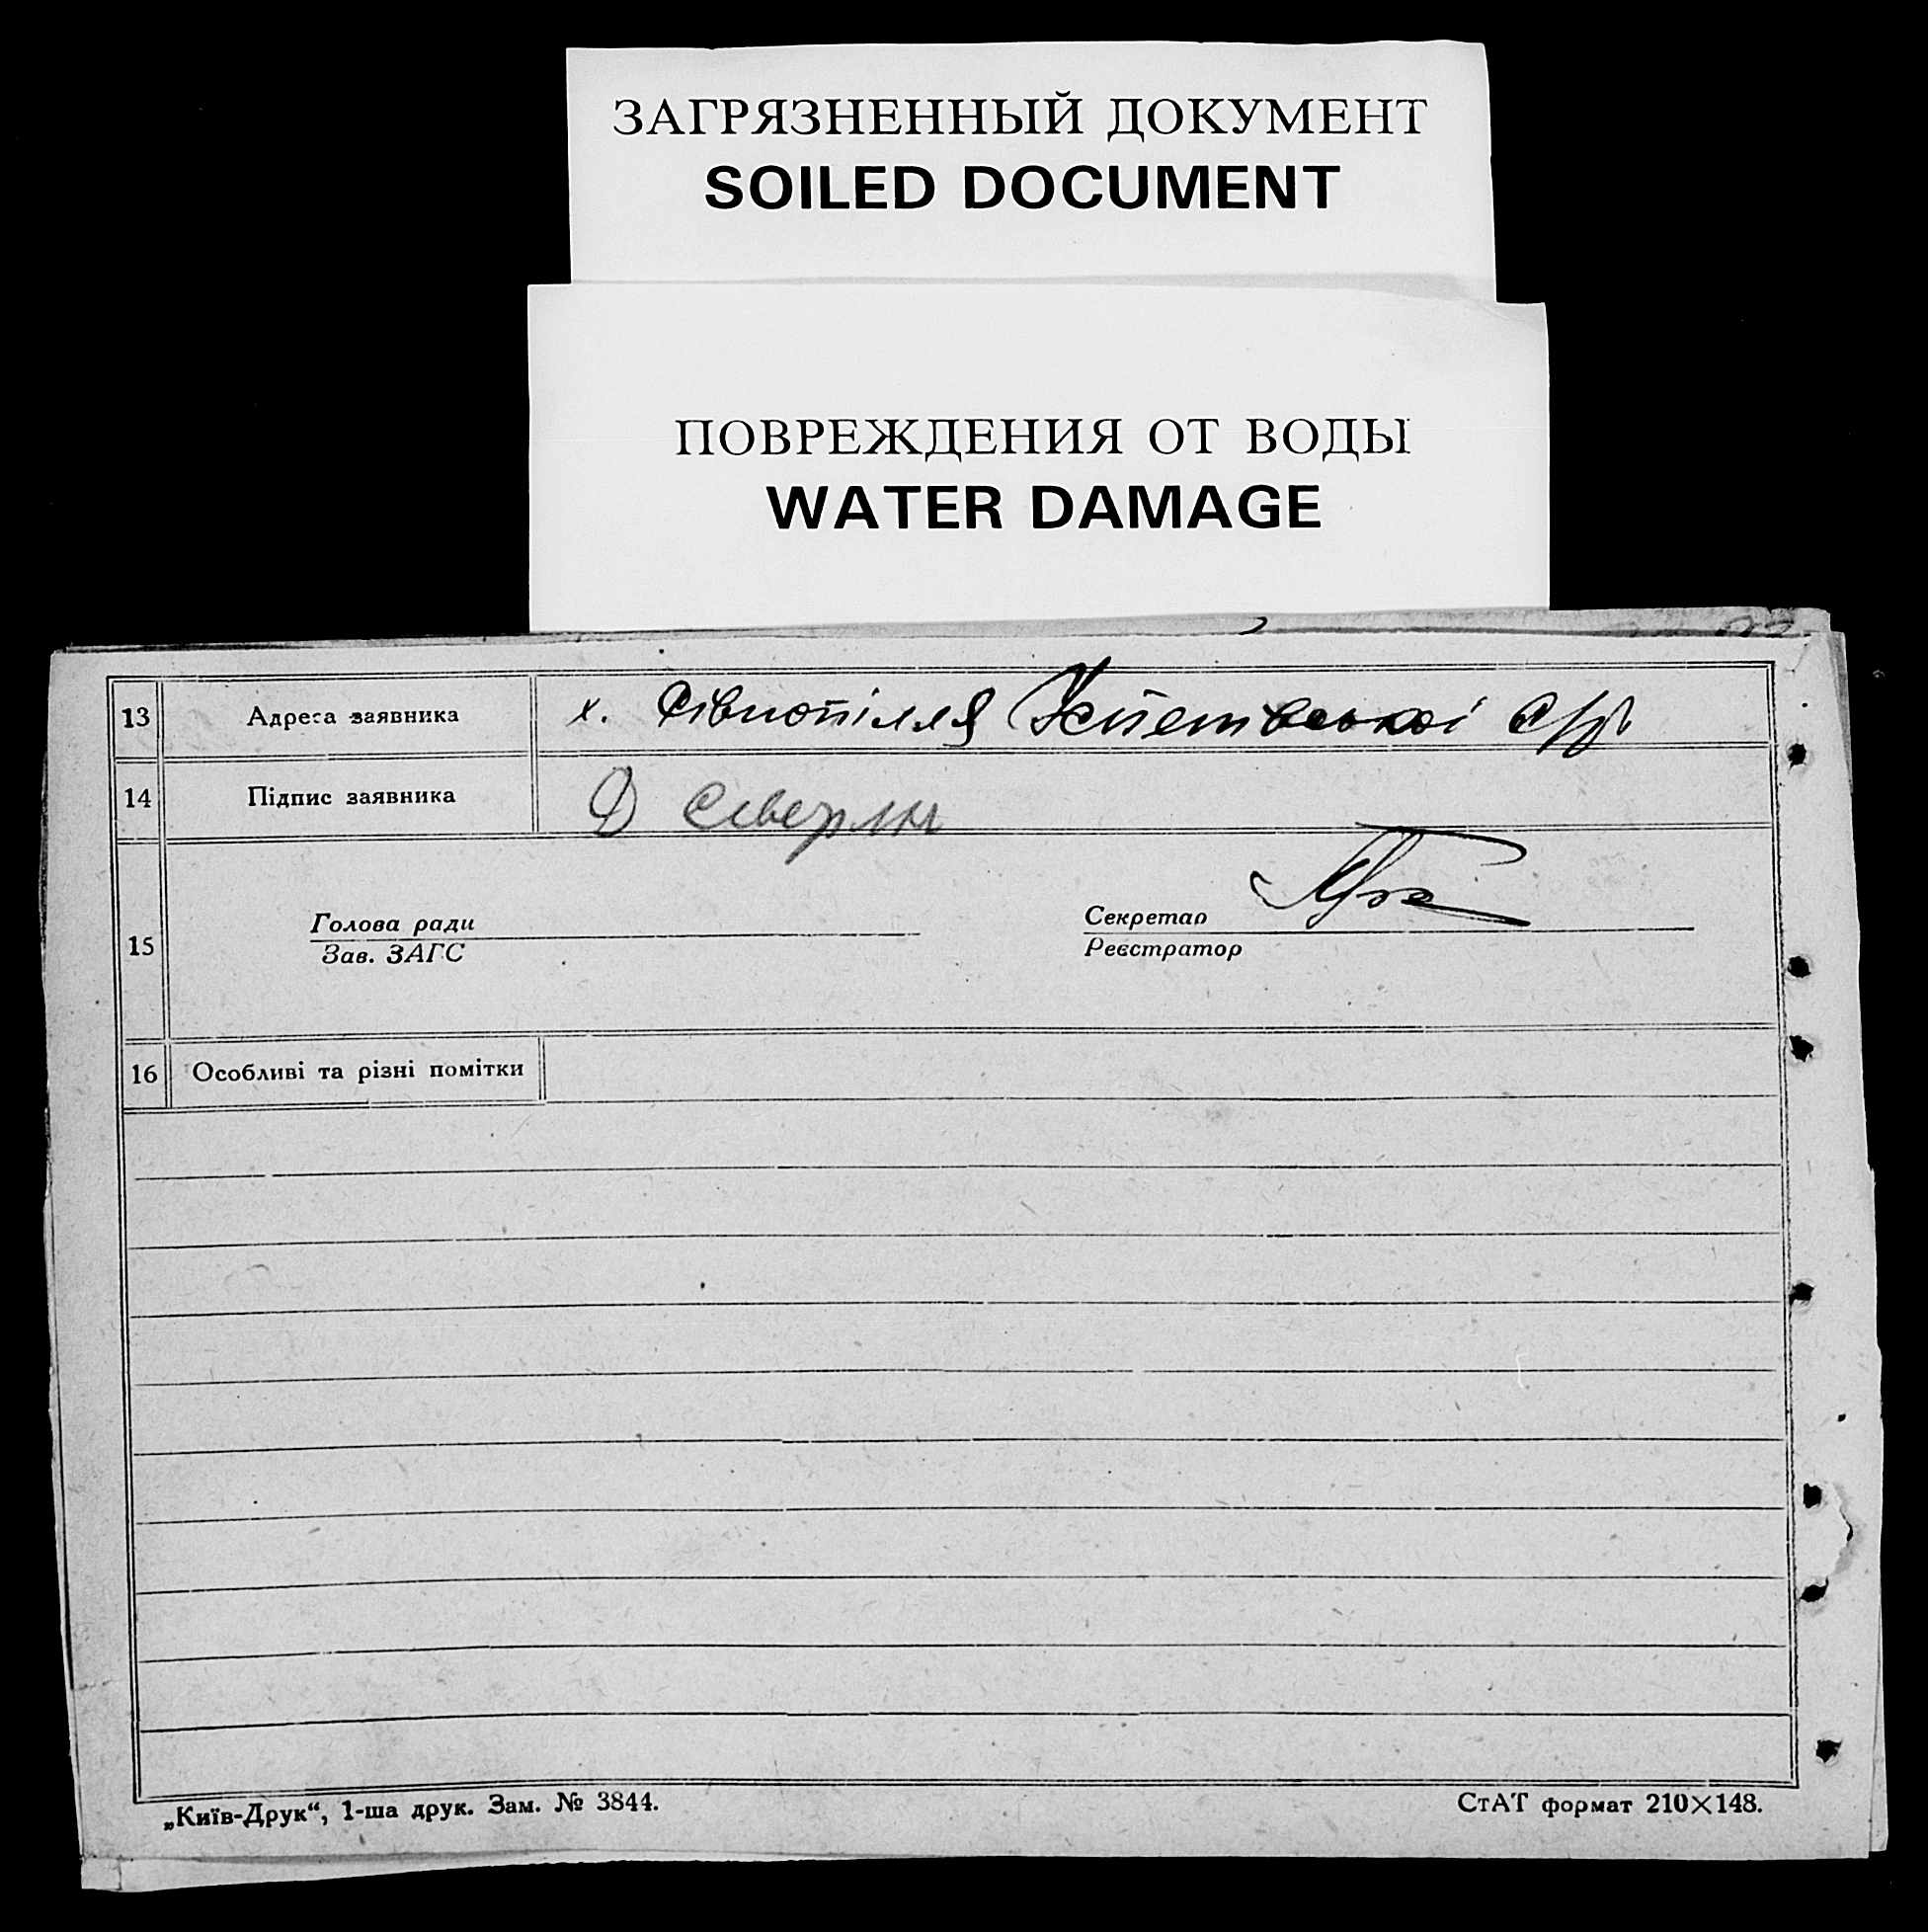 ЗАГРЯЗНЕННЫЙ ДОКУМЕНТ
SOILED DOCUMENT
ПОВРЕЖДЕНИЯ ОТ ВОДЫ
WATER DAMAGE
13 Адреса заявника х. с/р
14 Підпис заявника Д
Голова ради Секретар
15
Зав. ЗАГС Реєстратор
16 Особливі та різні помітки
„Київ-Друк“, 1-ша друк. Зам. № 3844. СтАТ формат 210×148.